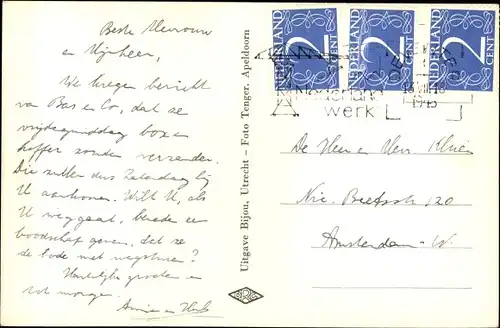 Beste Mevrouw
en Mijnheer,
We kregen bericht
van Bas en Co, dat ze
vrijdagmiddag boxen
koffer zonder verzenden.
Die zullen dus Zaterdag bij
U aankomen. Wilt U, als
U weggaat, beneden een
boodschap geven, dat ze
de bode niet wegsturen?
Hartelijke groeten en
tot morgen.
Annie en
Uitgave Bijou, Utrecht - Foto Tenger, Apeldoorn
NEDERLAND
2
CENT
NEDERLAND
2
CENT
NEDERLAND
2
CENT
Nederland
werk
18
1945
De Heer en Mevr
Nic. Beetsstr 120
Amsterdam-W.